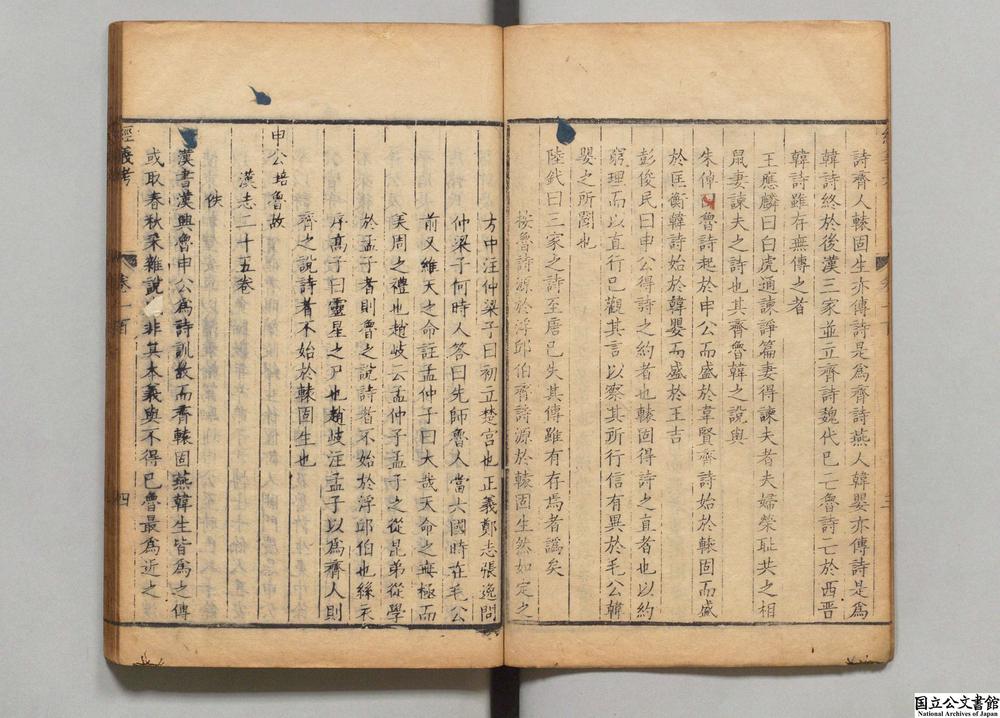 詩齊人轅固生亦傳詩是爲齊詩燕人韓嬰亦傳詩是爲
韓詩終於後漢三家並立齊詩魏代已亡魯詩亡於西晋
韓詩雖存無傳之者
王應麟曰白虎通諫諍篇妻得諫夫者夫婦榮耻共之相
鼠妻諫夫之詩也其齊魯韓之說與
朱倬曰魯詩起於申公而盛於韋賢齊詩始於轅固而盛
於匡衡韓詩始於韓嬰而盛於王吉
彭俊民曰申公得詩之約者也轅固得詩之直者也以約
窮理而以直行已觀其言以察其行信有異於毛公韓
嬰之所聞也
陸釴曰三家之詩至唐已失其傳雖有存焉者譌矣
按魯詩源於浮邱伯齊詩源於轅固生然如定之
方中注仲梁子曰初立楚宮也正義鄭志張逸問
仲梁子何時人答曰先師魯人當六國時在毛公
前又維天之命註孟仲子曰大哉天命之無極而
美周之禮也趙岐云孟仲子孟子之從昆弟從學
於孟子者則魯之說詩者不始於浮邱伯也絲衣
序髙子曰靈星之尸也趙岐注孟子以爲齊人則
齊之說詩者不始於轅固生也
申公培魯故
漢志二十五卷
佚
漢書漢興魯申公爲詩訓故而齊轅固燕韓生皆爲之傳
或取春秋采雜說非其本義與不得已魯最爲近之
經義考
卷一百
四
国立公文書館
National Archives of Japan